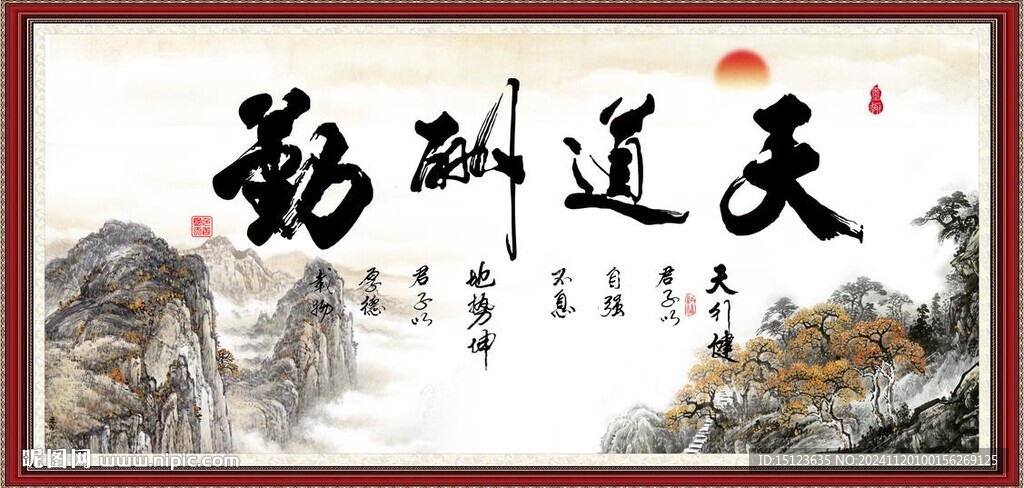 天道酬勤
天行健
君子以
自强
不息
地势坤
君子以
厚德
载物
昵图网 www.nipic.com
ID:15123635 NO:20241120100156269125